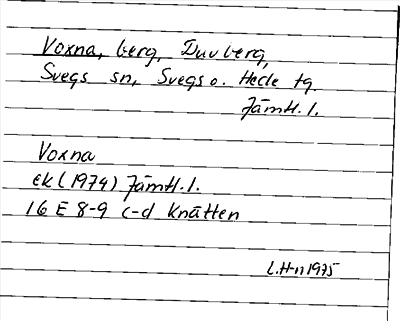 Voxna, berg, Duvberg,
Svegs sn, Svegs o. Hede tg.
Jämtl. l.
Voxna
ek (1974) Jämtl. l.
16 E 8-9 c-d Knätten
L.H-n 1975